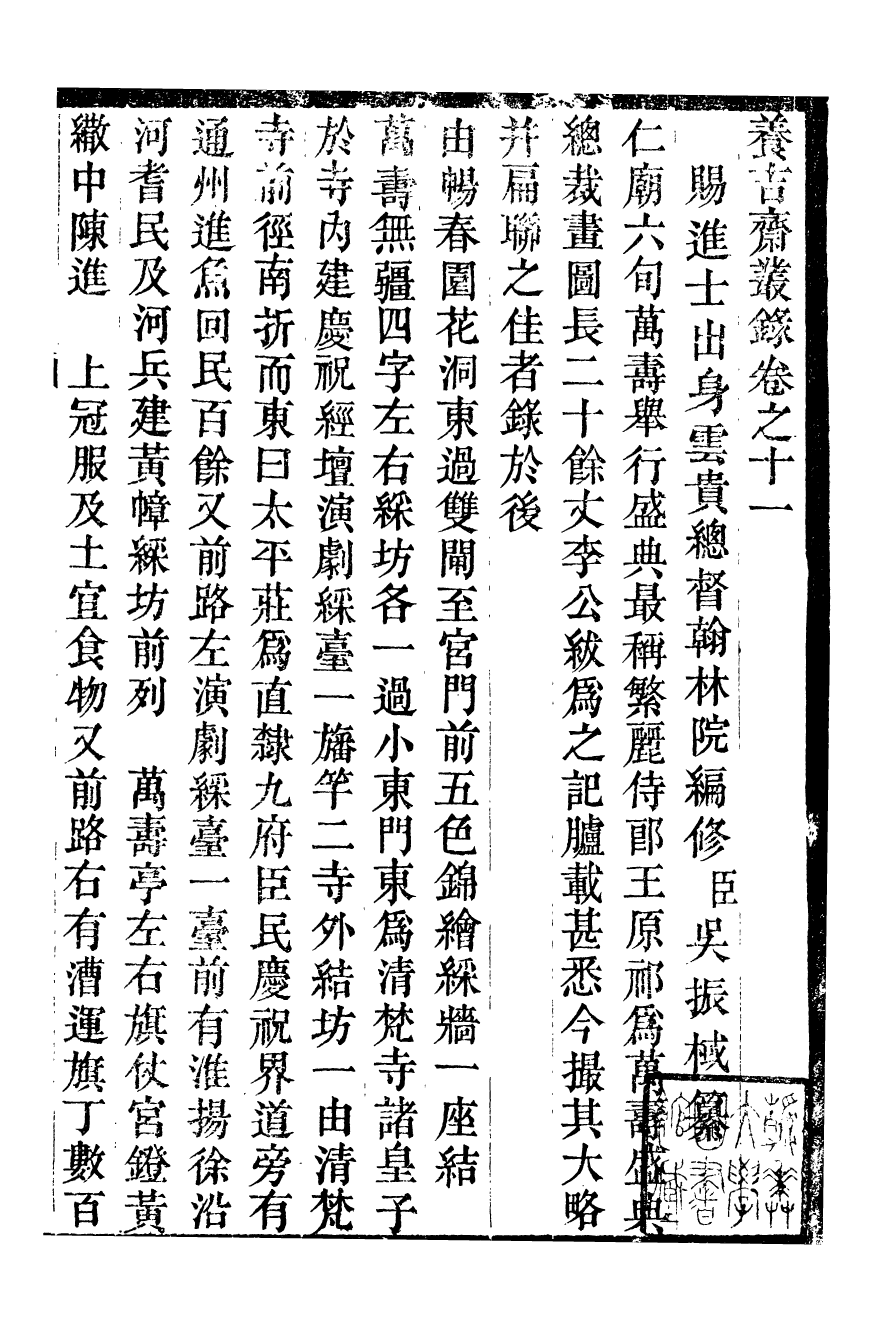 養吉齋叢錄卷之十一
賜進士出身雲貴總督翰林院編修臣吳振棫纂
仁廟六旬萬壽舉行盛典最稱繁麗侍郎王原祁爲萬壽盛典
總裁畫圖長二十餘丈李公紱爲之記臚載甚悉今撮其大略
并扁聯之佳者錄於後
由暢春園花洞東過雙閘至宮門前五色錦繪綵牆一座結
萬壽無疆四字左右綵坊各一過小東門東爲清梵寺諸皇子
於寺內建慶祝經壇演劇綵臺一旛竿二寺外結坊一由清梵
寺前徑南折而東曰太平莊爲直隸九府臣民慶祝界道旁有
通州進魚回民百餘又前路左演劇綵臺一臺前有淮揚徐沿
河耆民及河兵建黃幛綵坊前列　萬壽亭左右旗仗宮鐙黃
繖中陳進　上冠服及土宜食物又前路右有漕運旗丁數百